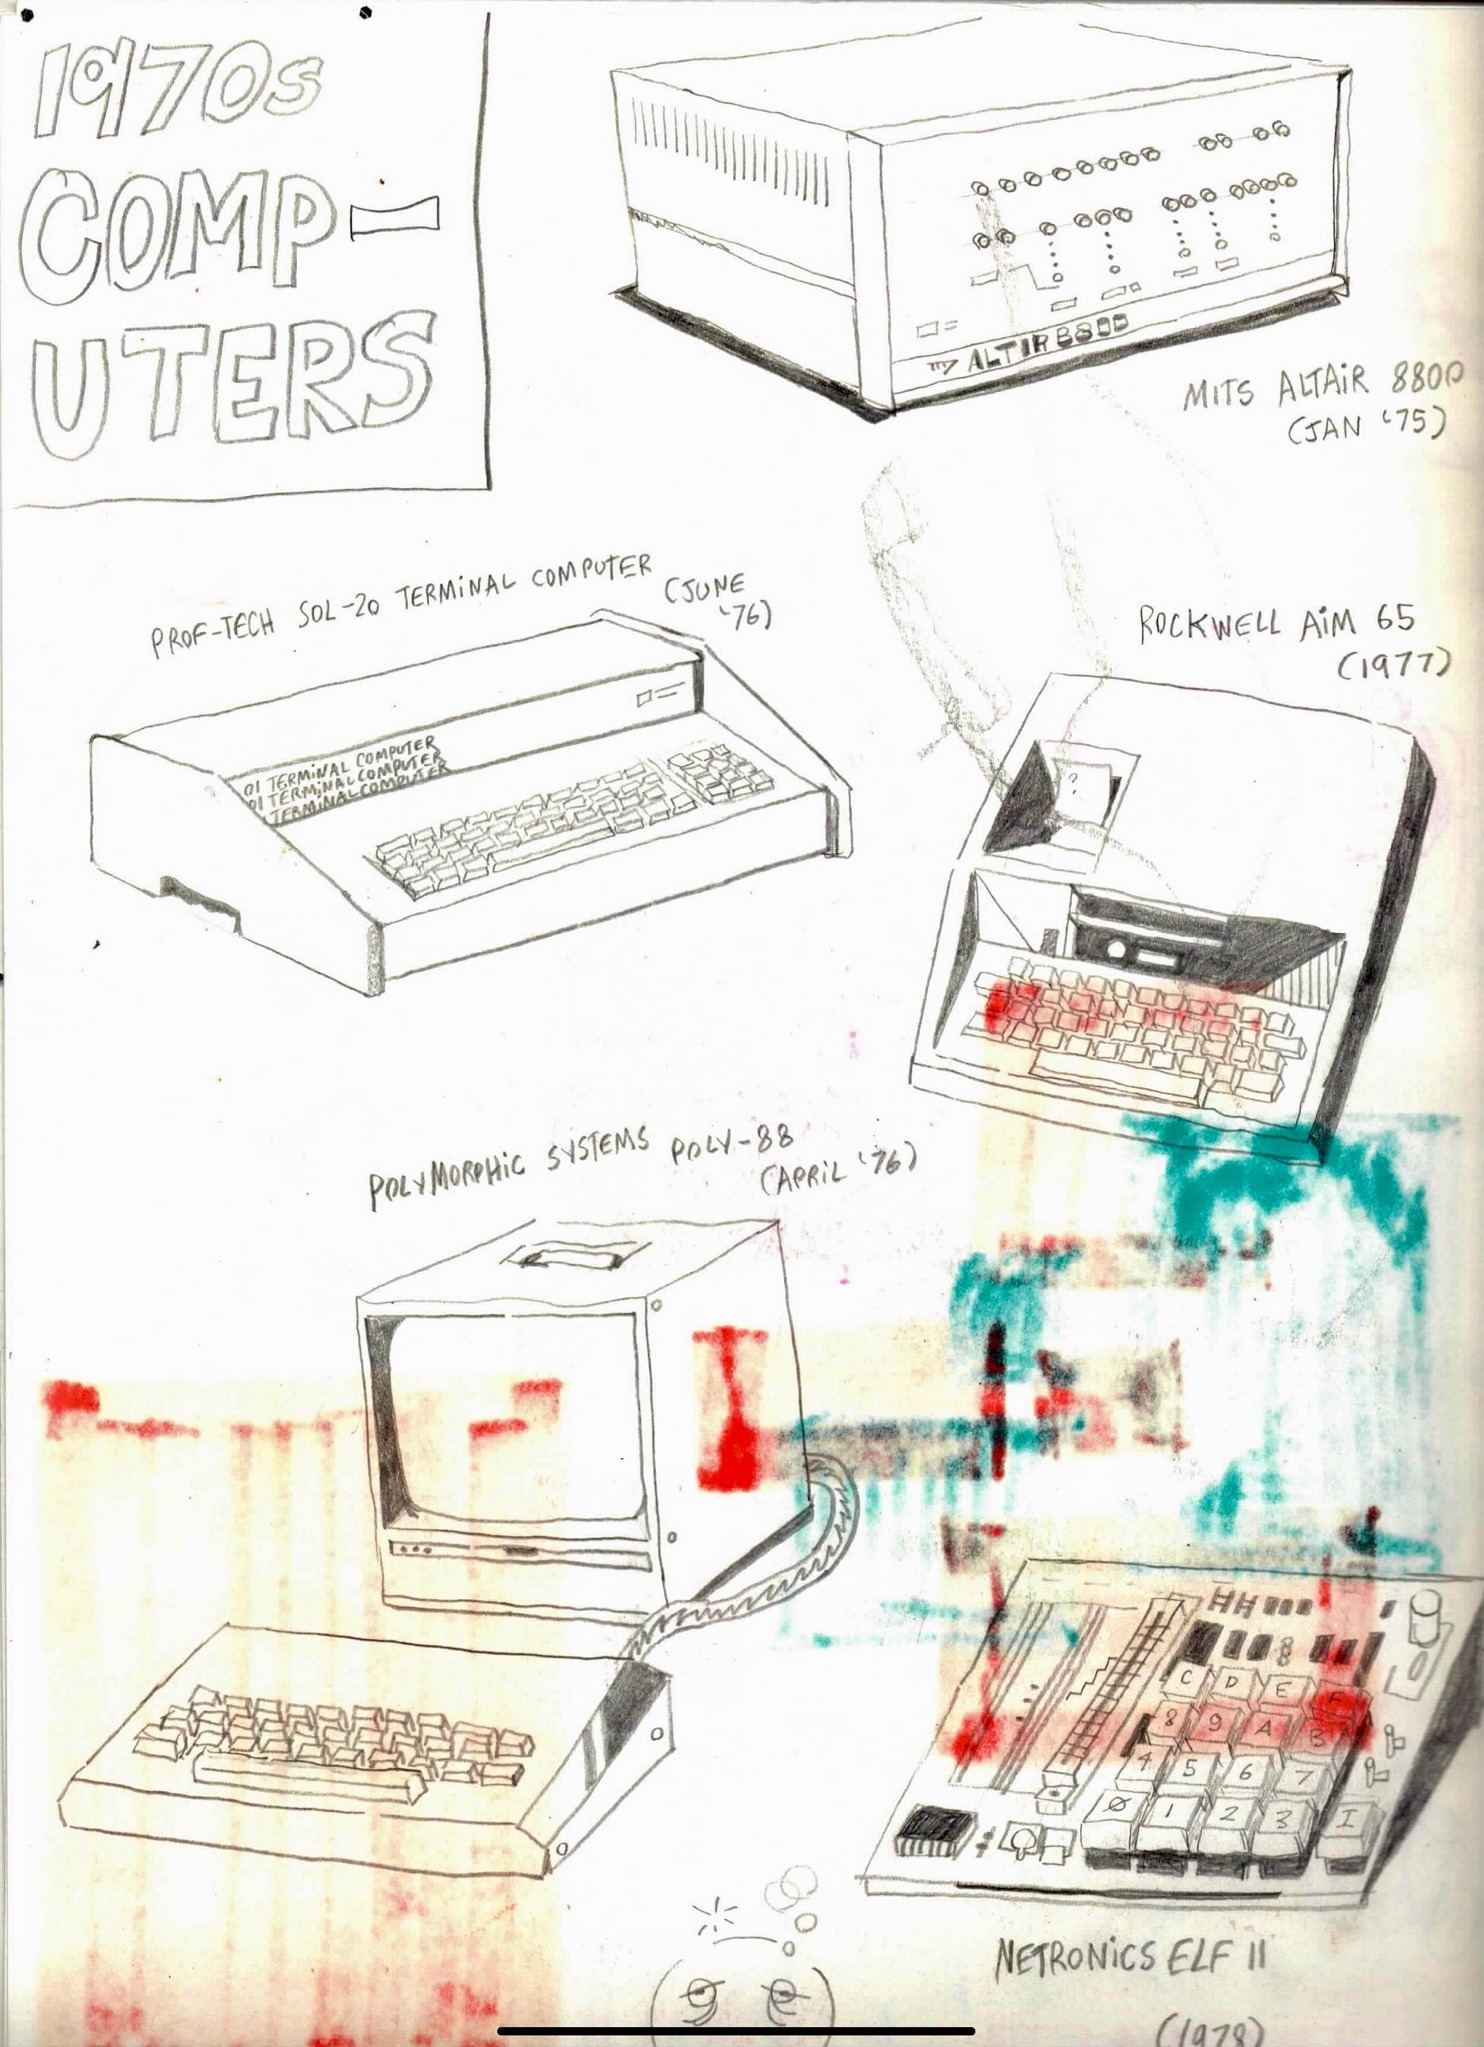 1970s
COMP-
UTERS
ALTIR 8800
MITS ALTAiR 8800
(JAN '75)
PROF-TECH SOL-20 TERMiNAL COMPUTER
(JUNE
'76)
01 TERMiNAL COMPUTER
01 TERMiNAL COMPUTER
TERMiNAL COMPUTER
ROCKWELL AiM 65
(1977)
?
POLYMORPHiC SYSTEMS POLY-88
(APRiL '76)
C D E F
8 9 A B
4 5 6 7
0 1 2 3 I
NETRONiCS ELF II
(1978)